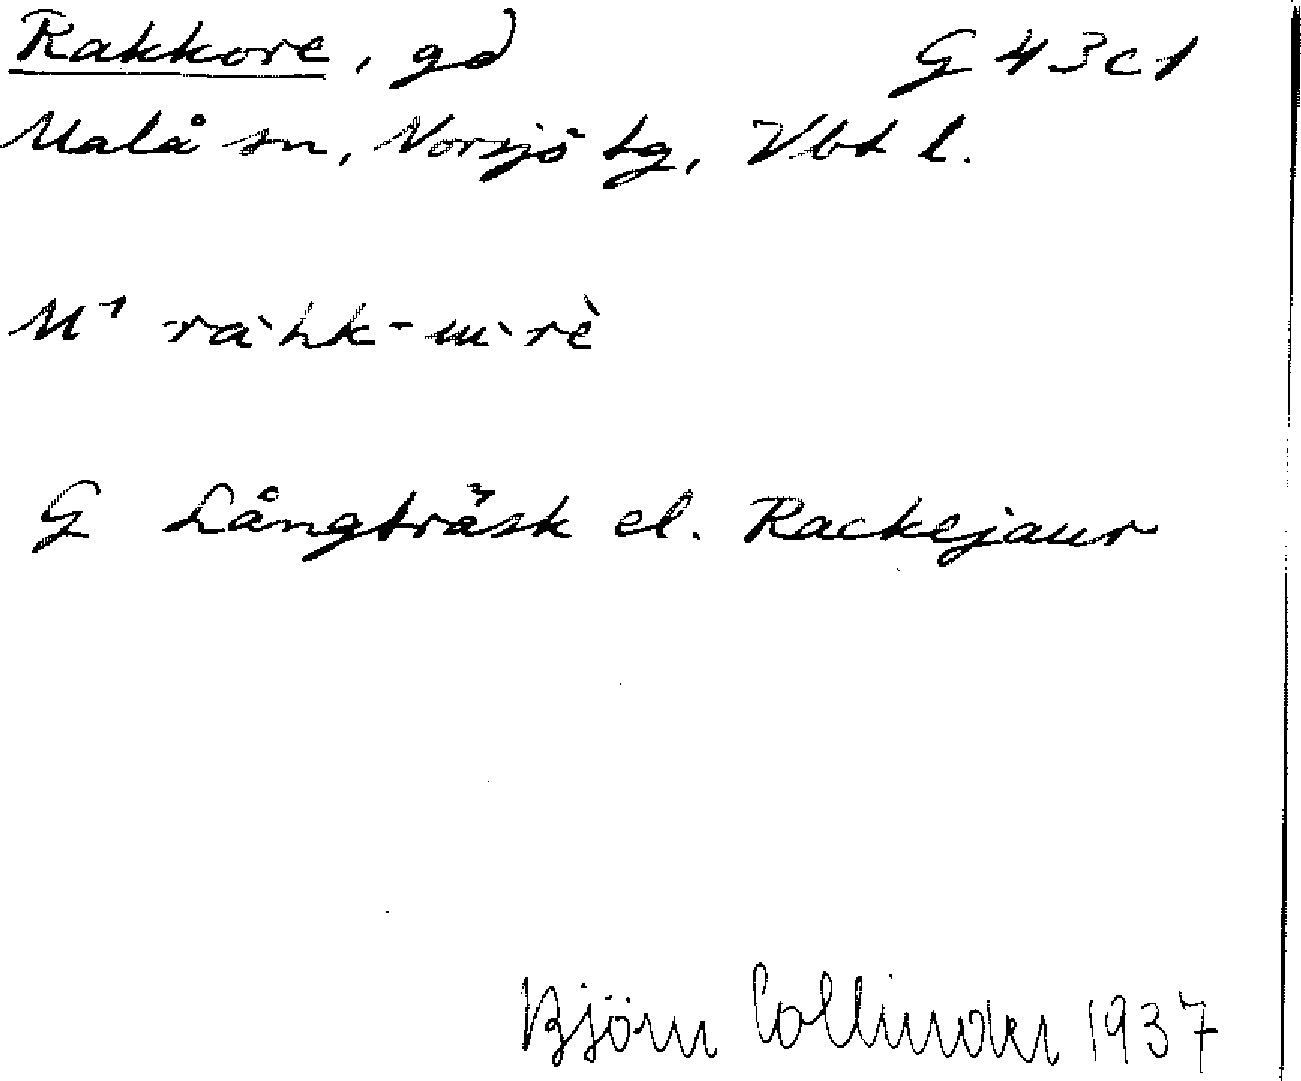 Rakkore, gd G 43c1
Malå sn, Norsjö tg, Vbt l.
M¹ ra`hk-ɯ`rè
G Långträsk el. Rackejaur
Björn Collinder 1937